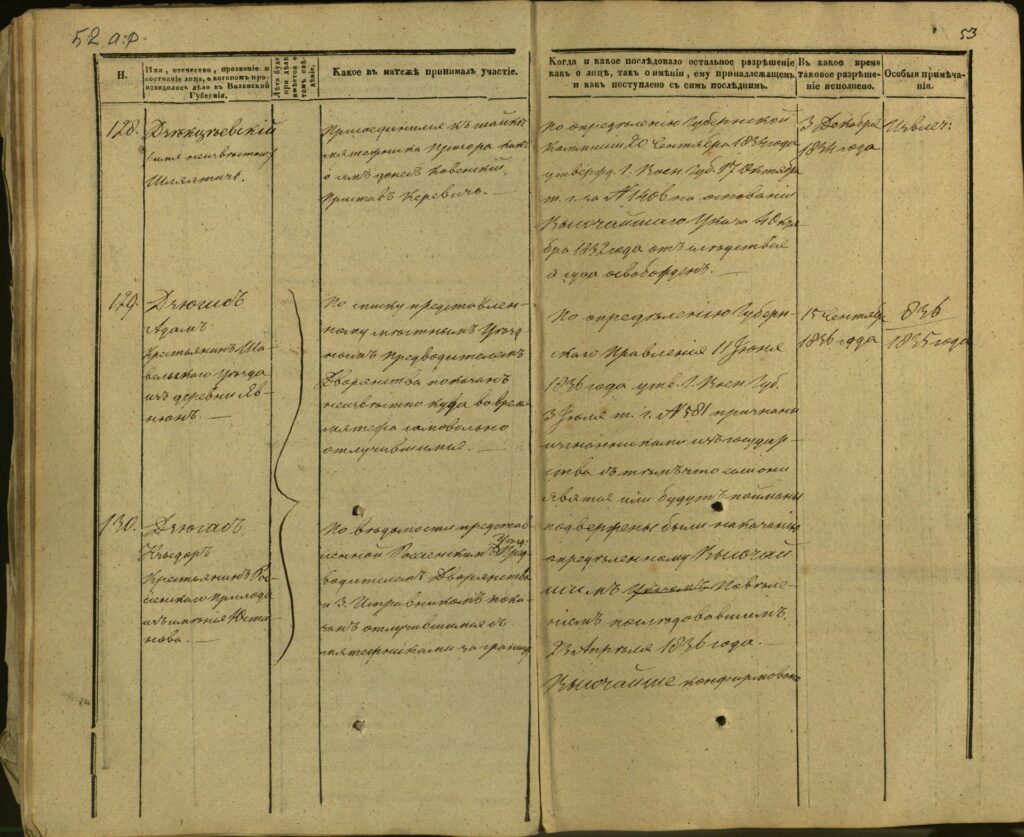 52 а:р.
53
Н.
Имя, отечество, прозваніе и
состояніе лица, о которомъ про-
изводилось дѣло въ Виленской
Губерніи.
Лѣта буде
при дѣлѣ
имѣется о
томъ свѣ-
дѣніе.
Какое въ мятежѣ принималъ участіе.
Когда и какое послѣдовало остальное разрѣшеніе
какъ о лицѣ, такъ о имѣніи, ему принадлежащемъ
и какъ поступлено съ симъ послѣднимъ.
Въ какое время
таковое разрѣше-
ніе исполнено.
Особыя примѣча-
нія.
128.
(имя неизвѣстно)
Шляхтичъ.
Присоединился къ шайкѣ
мятежника какъ
о семъ донесъ Ковенскій
Приставъ Керевичъ. —
По опредѣленію Губернской
Коммисіи 20 Сентября 1834 года
утвержд. Г. Воен. Губ. 17 Октября
т. г. за № 1406 на основаніи
Высочайшаго Указа 4 Октя-
бря 1832 года отъ слѣдствія
и суда освобожденъ. —
3 Декабря
1834 года
129.
Дзюгисъ
Адамъ
Крестьянинъ Ша-
вельскаго Уѣзда
изъ деревни Яв-
нюнъ. —
По списку представлен-
ному мѣстнымъ Уѣзд-
нымъ Предводителемъ
Дворянства показанъ
неизвѣстно куда во время
мятежа самовольно
отлучившимся. —
По опредѣленію Губерн-
скаго Правленія 11 Іюня
1836 года утв. Г. Воен. Губ.
3 Іюля т. г. № 581 признаны
изгнанниками изъ государ-
ства съ тѣмъ что если они
явятся или будутъ пойманы
подвержены были наказанію
опредѣленному Высочай
шимъ Повелѣ-
ніемъ послѣдовавшемъ
23 Апрѣля 1836 года. —
Высочайше конфирмовано
15 Сентября
1836 года
836
1835 года
130.
Дзюгасъ
Крестьянинъ Рос-
сіенскаго
изъ имѣнія
По вѣдомости представ-
ленной Россіенскимъ Уѣзд: Пред-
водителемъ Дворянства
и З. Исправникомъ пока-
занъ отлучившимся съ
мятежниками за границу